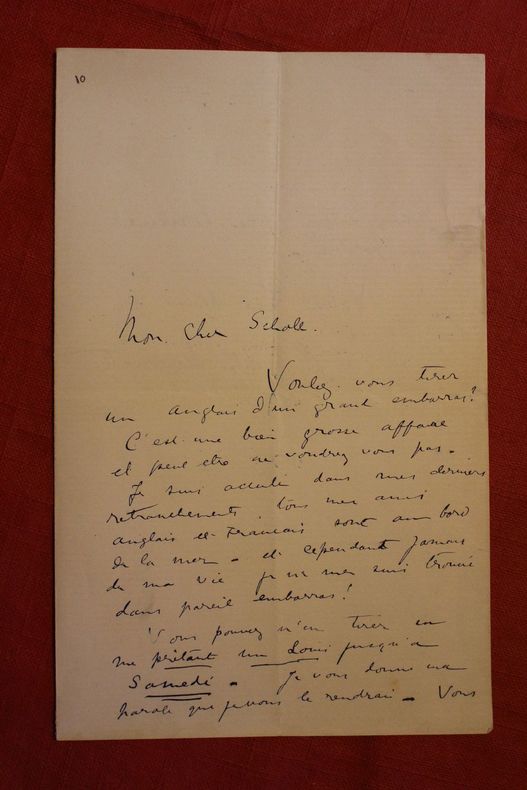 10
Mon cher Scholl.
Voulez vous tirer
un anglais d'un grand embarras?
C'est une bien grosse affaire
et peut etre ne voudrez vous pas -
Je suis acculé dans mes derniers
retranchements. tous mes amis
anglais et Francais sont au bord
de la mer - et cependant jamais
de ma vie je ne me suis trouvé
dans pareil embarras!
Vous pouvez m'en tirer en
me prêtant un Louis jusqu'a
Samedi - Je vous donne ma
parole que je vous le rendrai - Vous